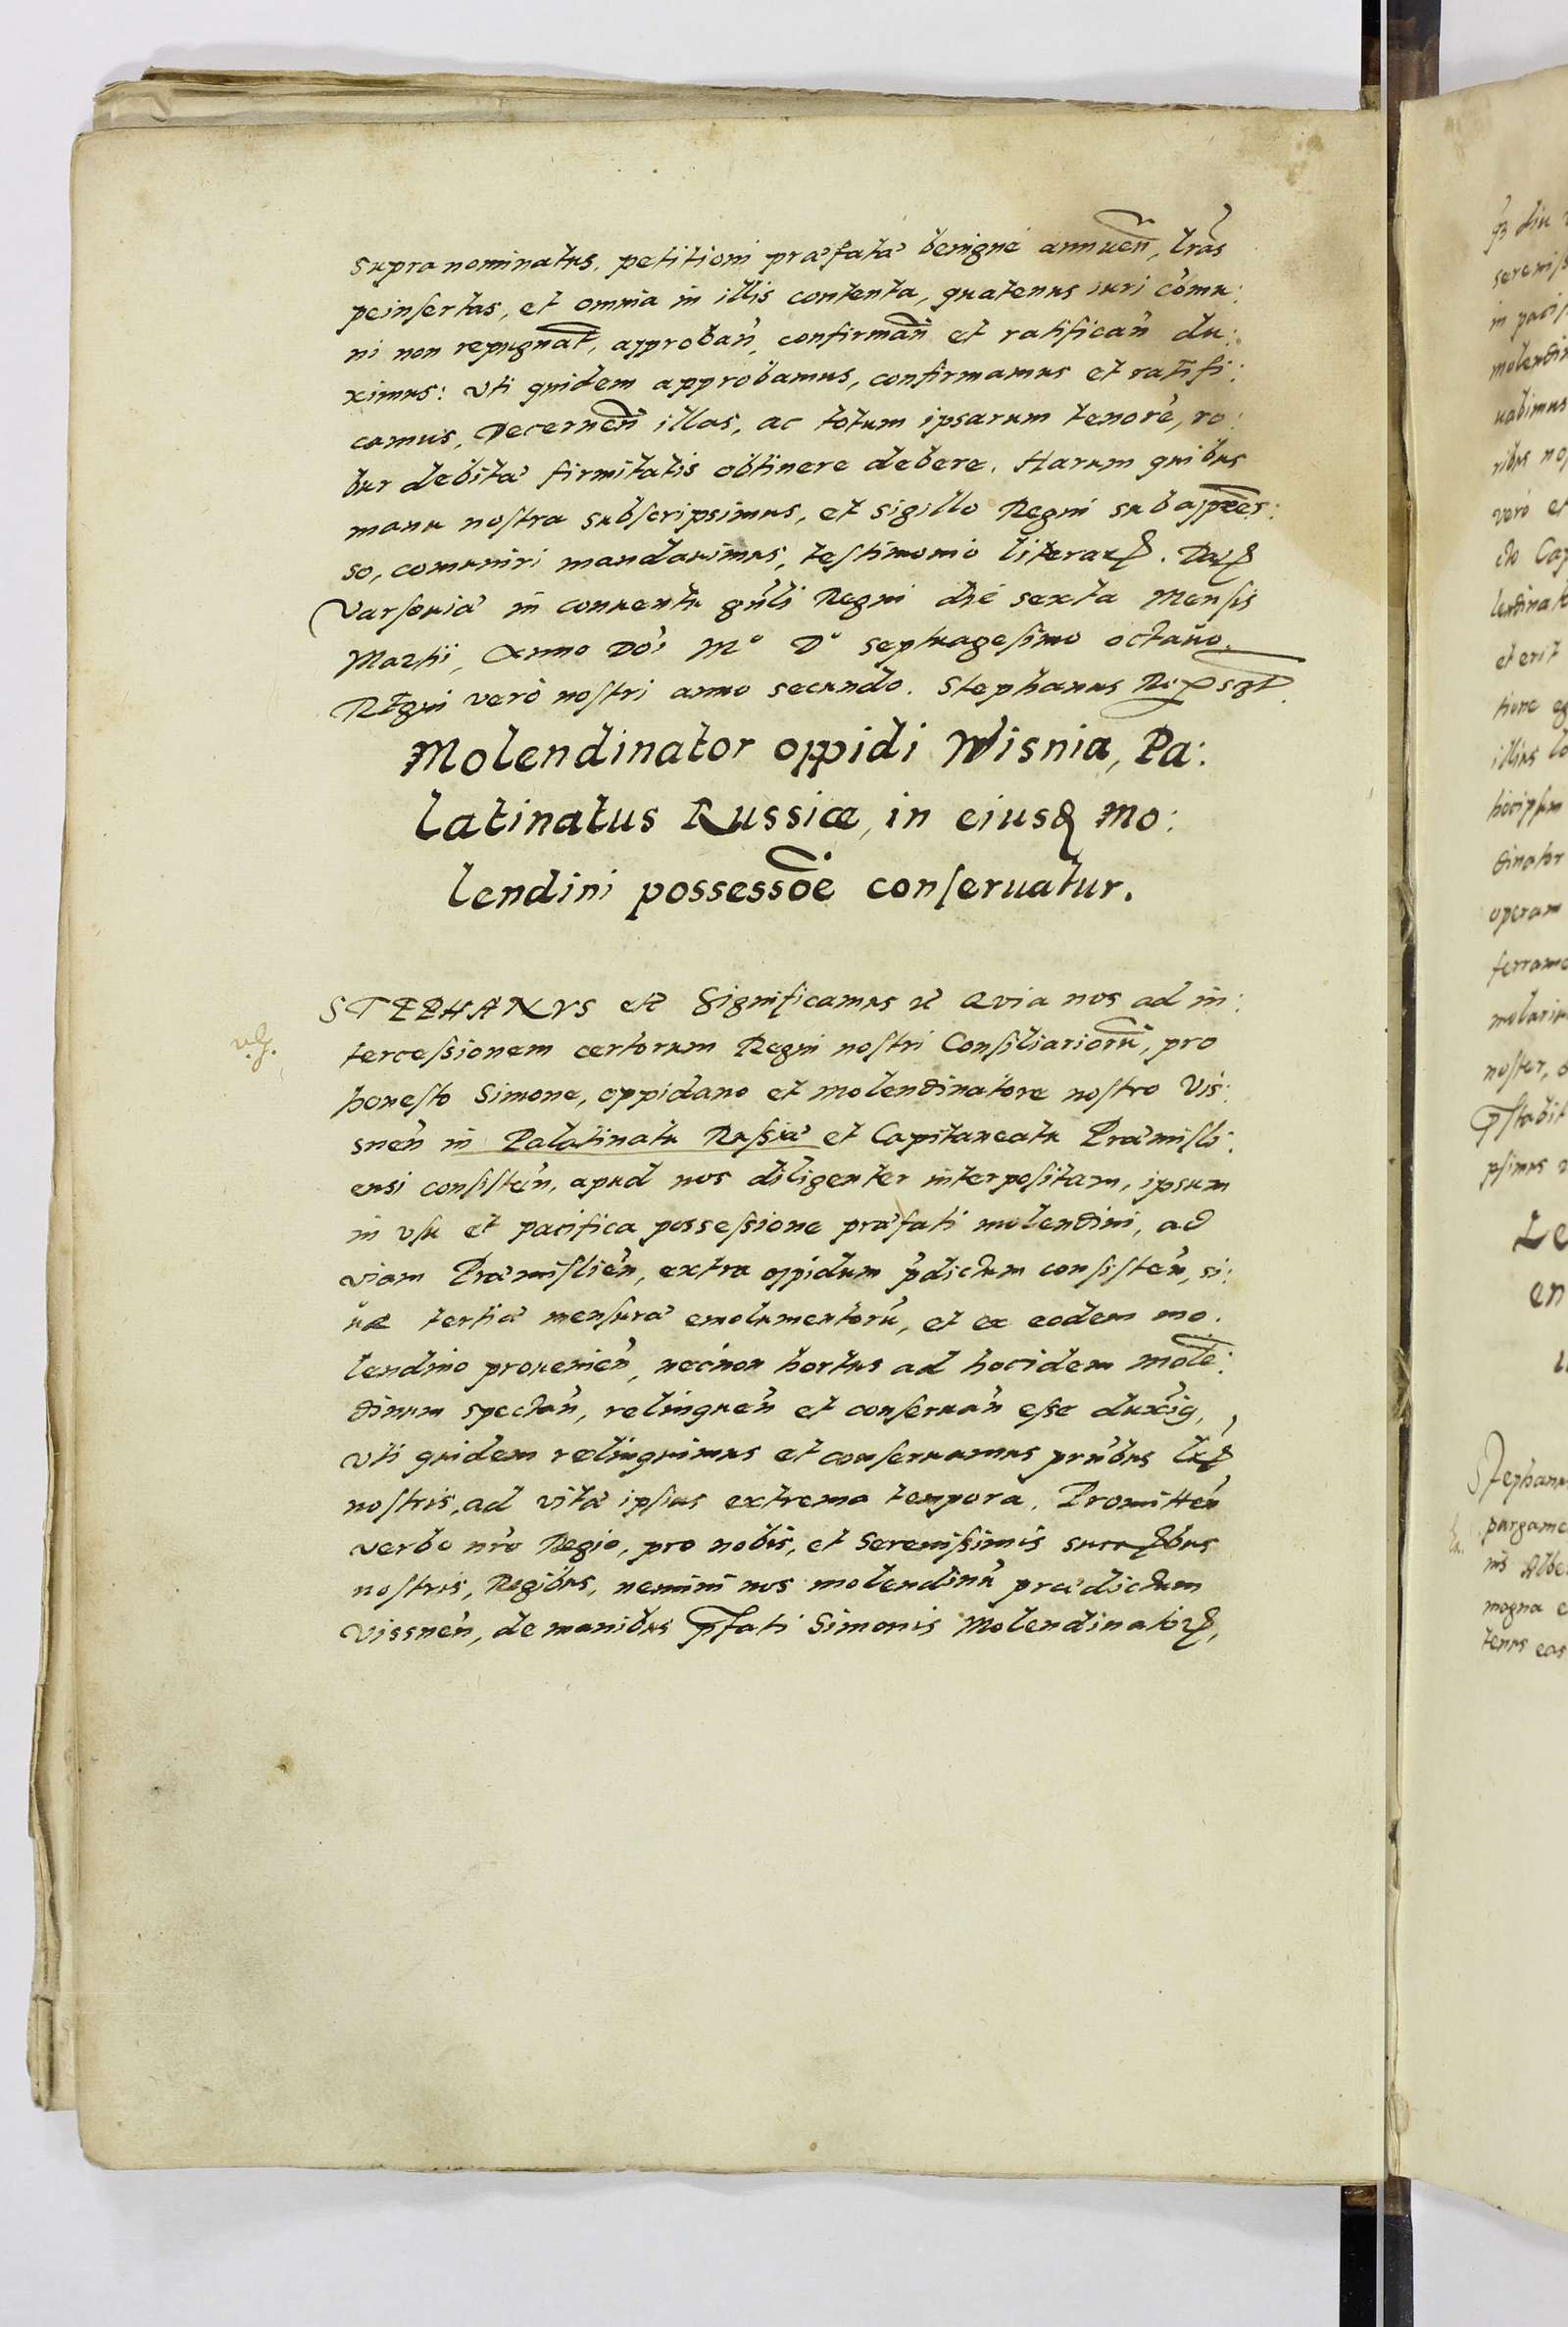 supranominatus, petitioni præfatæ benigne annuen̄, l̃ras
peinsertas, et omnia in illis contenta, quatenus iuri cõmu:
ni non repugnãt, approbañ, confirmãn et ratificañ du:
ximus: Vti quidem approbamus, confirmamus et ratifi:
camus, Decernẽn illas, ac totum ipsarum tenorẽ, ro:
bur debitæ firmitatis obtinere debere. Harum quibus
manu nostra subscripsimus, et sigillo Regni subapp̃res:
so, comuniri mandauimus, testimonio literarꝝ. Datꝝ
Varsouiæ in conuentu gñli Regni die sexta Mensis
Martii, Anno Dõi Mº Dº septuagesimo octauo.
Regni verò nostri anno secundo. Stephanus Rex sszt.
Molendinator oppidi Wisnia, Pa:
latinatus Russiæ, in eiusꝗ Mo:
lendini possessõe conseruatur.
STEPHANVS etc Significamus etc Quia nos ad in:
tercessionem certorum Regni nostri Consiliariorũ, pro
honesto Simone, oppidano et molendinatore nostro Vis:
sneñ in Palatinatu Russiæ et Capitaneatu Præmisli:
ensi consisteñ, apud nos diligenter interpositam, ipsum
in vsu et pacifica possessione præfati molendini, ad
viam Præmislieñ, extra oppidum p̃dictum consisteñ, si:
ue tertiæ mensuræ emolumentorũ, et ex eodem mo:
lendino prouenieñ, necnon hortus ad hocidem molẽ:
dinum spectañ, relinqueñ et conseruañ esse duxĩꝯ,
Vti quidem relinquimus et conseruamus pr̃ñbus l̃rꝭ
nostris, ad vitæ ipsius extrema tempora. Promitteñ
verbo nr̃o Regio, pro nobis, et Serenissimis succꝭbus
nostris, Regibus, nemini nos molendinũ prædictum
Vissneñ, de manibus p̃fati Simonis Molendinatorꝭ,